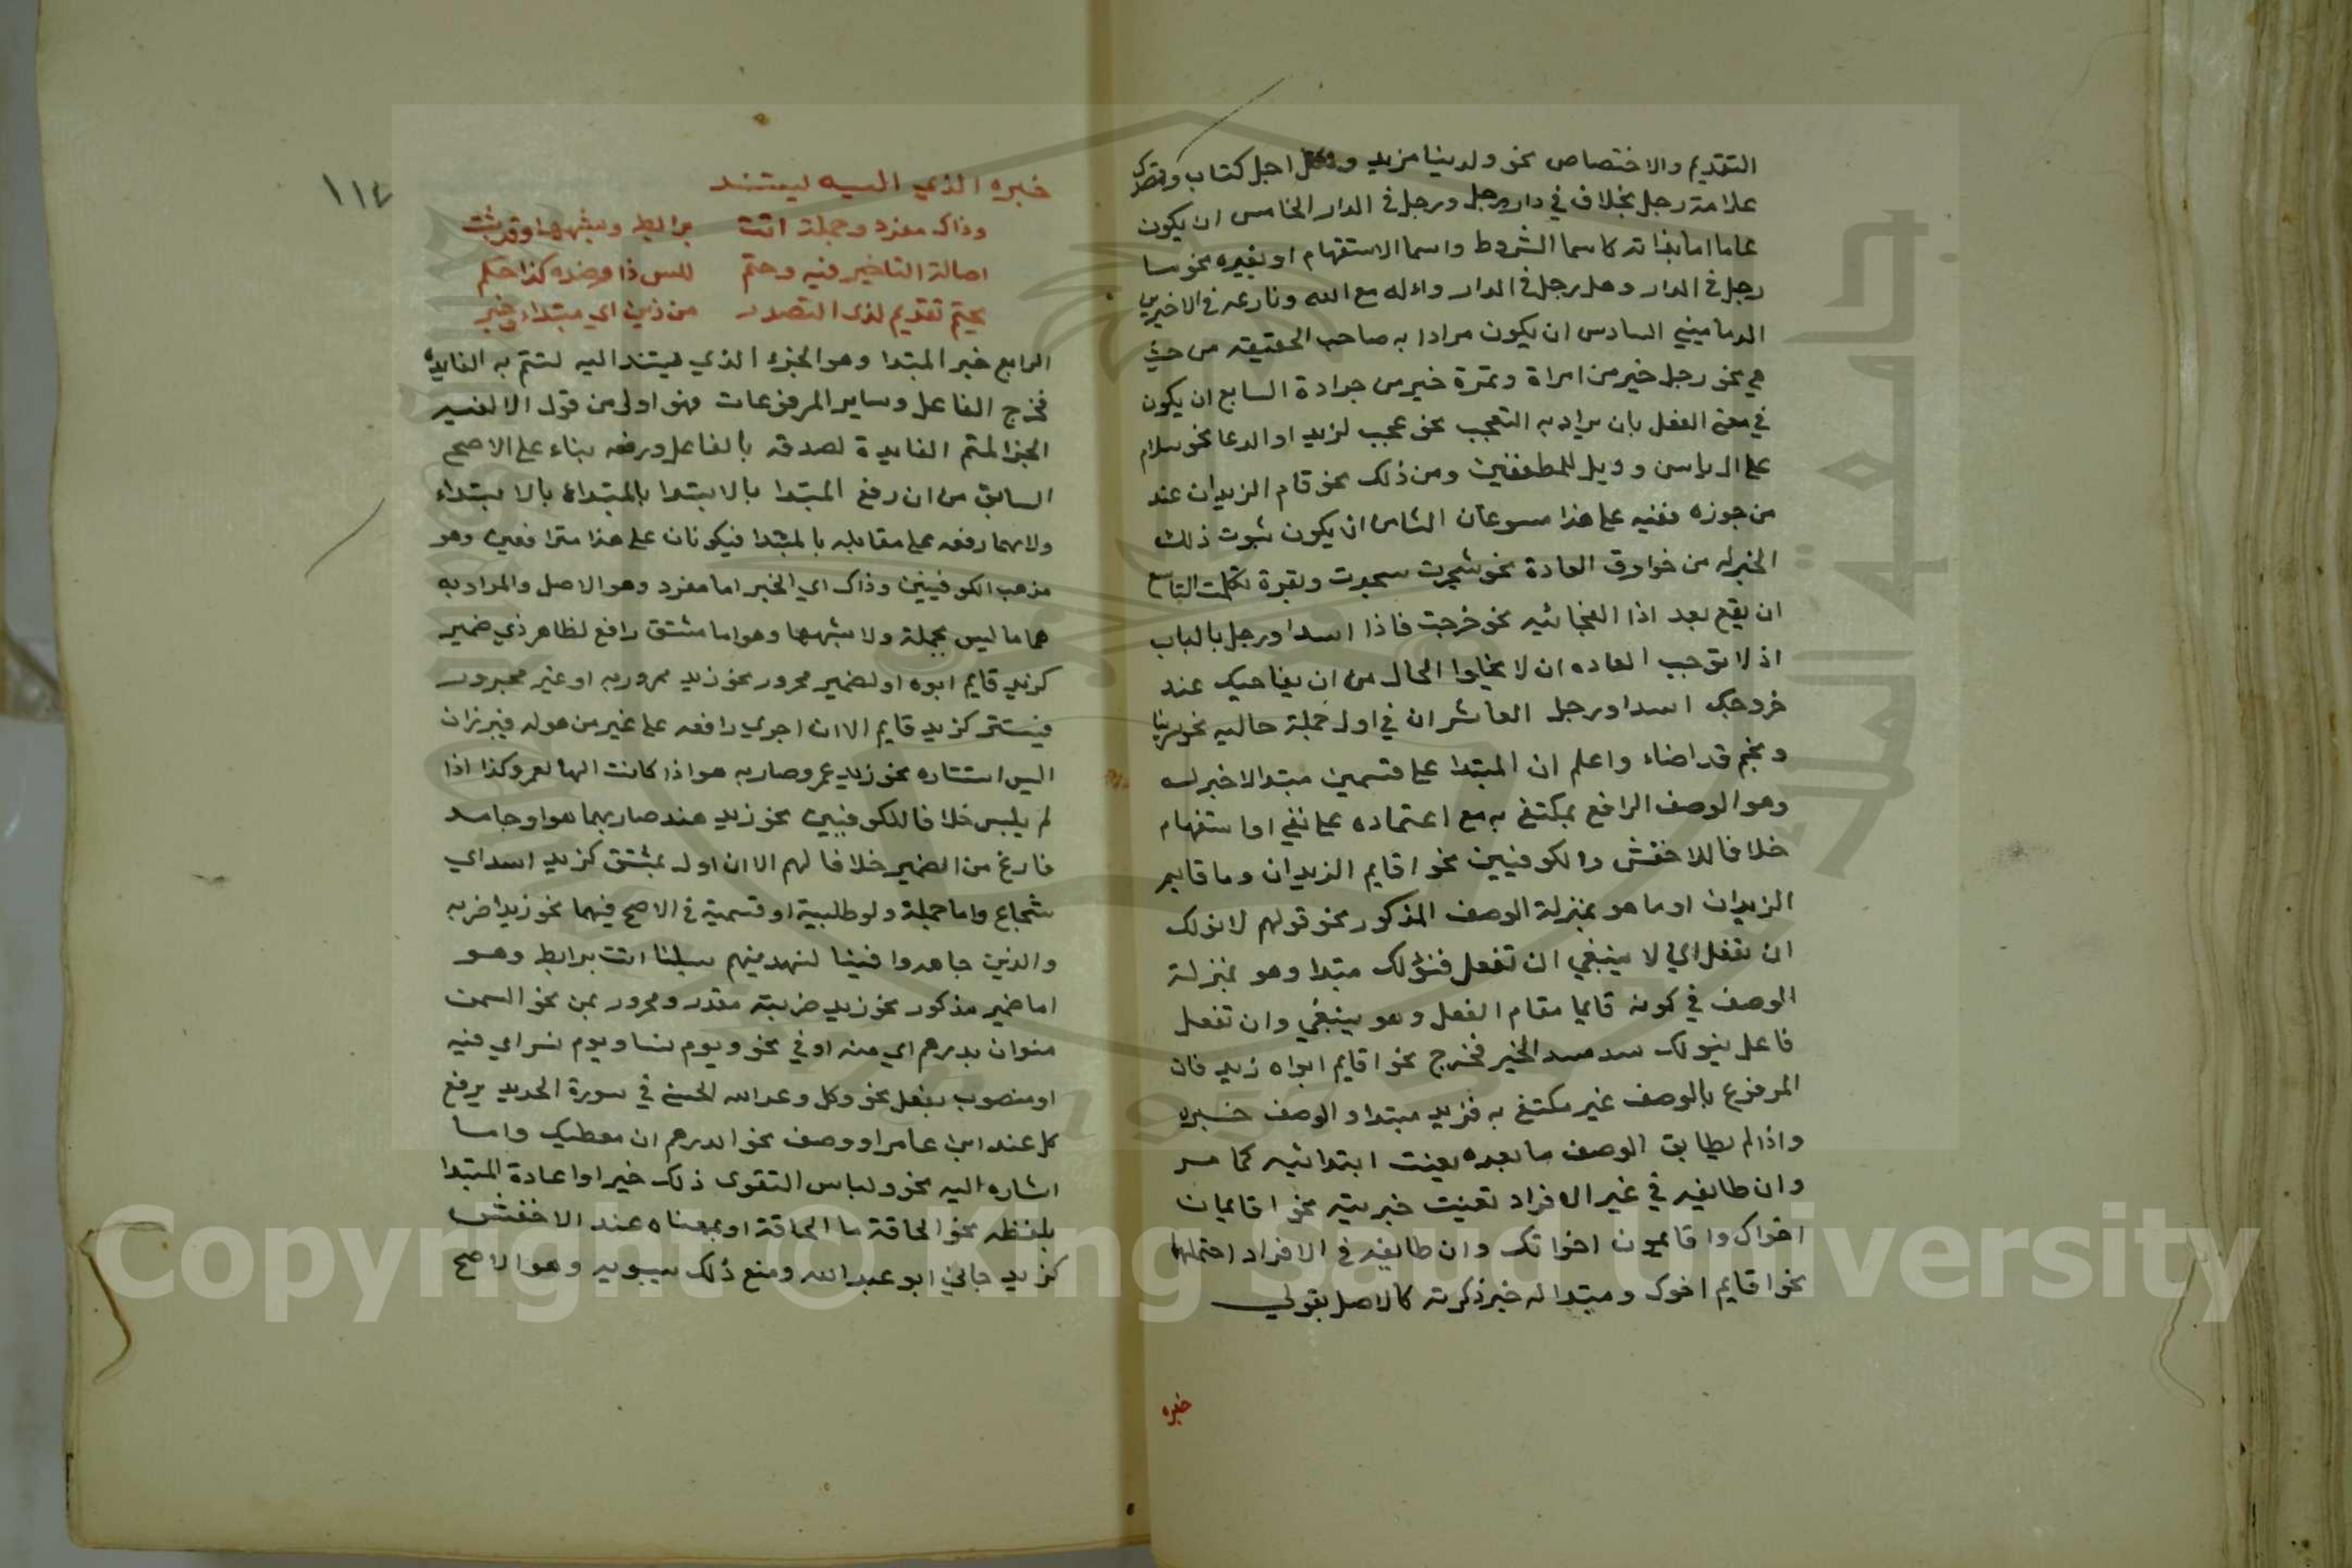 التقديم والاختصاص نحو ولدينا مزيد ولكل اجل كتاب وقصدك
علامه رجل بخلاف في دار رجل ورجل في الدار الخامس ان يكون
عاما اما بذاته كاسما الشروط واسما الاستفهام او بغيره نحو ما
رجل في الدار وهل رجل في الدار واله مع الله ونازعه في الاخيرين
الدماميني السادس ان يكون مرادا به صاحب الحقيقه من حيث
هي نحو رجل خير من امراة وتمرة خير من جرادة السابع ان يكون
في معنى الفعل بان يراد به التعجب نحو عجب لزيد او الدعا نحو سلام
على ال ياسن وويل للمطففين ومن ذلك نحو قام الزيدان عند
من جوزه ففيه على هذا مسوغان الثامن ان يكون ثبوت ذلك
الخبر له من خوارق العادة نحو شجرت سجدت وبقرة تكلمت التاسع
ان يقع بعد اذا الفجائيه نحو خرجت فاذا اسد او رجل بالباب
اذ لا توجب العاده ان لا يخلوا الحال من ان يفاجيك عند
خروجك اسد او رجل العاشر ان في اول جملة حاليه نحو سرينا
ونجم قد اضاء واعلم ان المبتدا على قسمين مبتدا لا خبر له
وهو الوصف الرافع بمكتفى به مع اعتماده على نفي او استفهام
خلافا للاخفش والكوفيين نحو اقايم الزيدان وما قايم
الزيدان او ما هو بمنزلة الوصف المذكور نحو قولهم لا نولك
ان تفعل اي لا ينبغي ان تفعل فنولك مبتدا وهو بمنزلة
الوصف في كونه قايما مقام الفعل وهو ينبغي وان تفعل
فاعل بنولك سد مسد الخبر فخرج نحو اقايم ابواه زيد فان
المرفوع بالوصف غير مكتفى به فزيد مبتدا والوصف خبره
واذا لم يطابق الوصف ما بعده تعينت ابتدائيه كما مر
وان طابقه في غير الافراد تعينت خبريته نحو اقايمان
اخواك واقايمون اخوانك وان طابقه في الافراد احتملها
نحو اقايم اخوك ومبتدا له خبر ذكرته كالاصل بقولي
خبره
١١٤
خبره الذي اليه ليستند
وذاك مفرد وجملة اتت برابط وشبهها وقد ثبت
اصالة التاخير فيه وحتم للبس ذا وضده كذا حكم
يحتم تقديم لذى التصدر من ذين اي مبتداء وخبر
الرابع خبر المبتدا وهو الجزء الذي يستند اليه لتتم به الفايدة
فخرج الفاعل وساير المرفوعات فهو اولى من قول الالفيه
الجز المتم الفايدة لصدقه بالفاعل ورفعه بناء على الاصح
السابق من ان رفع المبتدا بالابتدا بالمبتداء بالابتداء
ولا بهما رفعه على مقابله بالمبتدا فيكونان على هذا مترافعين وهو
مذهب الكوفيين وذاك اي الخبر اما مفرد وهو الاصل والمراد به
هما ما ليس بجملة ولا شبهها وهو اما مشتق رافع لظاهر ذي ضمير
كزيد قايم ابوه او لضمير مجرور نحو زيد ممرور به او غير مجرور
فيستتر كزيد قايم الا ان اجري رافعه على غير من هو له فيبرز ان
البس استتاره نحو زيد عمرو ضاربه هو اذا كانت الها لعمرو كذا اذا
لم يلبس خلافا للكوفيين نحو زيد هند ضاربها هو او جامد
فارغ من الضمير خلافا لهم الا ان اول بمشتق كزيد اسد اي
شجاع واما جملة ولو طلبية او قسمية في الاصح فيهما نحو زيد اضربه
والذين جاهدوا فينا لنهدينهم سبلنا اتت برابط وهو
اما ضمير مذكور نحو زيد ضربته مقدر ومجرور بمن نحو السمن
منوان بدرهم اي منه او في نحو ويوم نسا ويوم نسر اي فيه
او منصوب بفعل نحو وكل وعد الله الحسنى في سورة الحديد برفع
كل عند ابن عامر او وصف نحو الدرهم ان معطيك واما
اشاره اليه نحو ولباس التقوى ذلك خير او اعادة المبتدا
بلفظه نحو الحاقة ما الحاقة او بمعناه عند الاخفش
كزيد جاني ابو عبد الله ومنع ذلك سيبويه وهو الاصح
Copyright © King Saud University